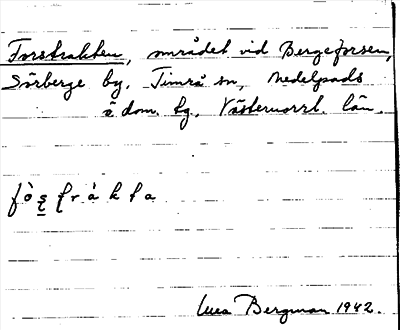 Forstrakten, området vid Bergeforsen,
Sörberge by, Timrå sn, Medelpads
ö dom. sg. Västernorrl. län.
fò s̱ t r à k t a
Bergman 1942.